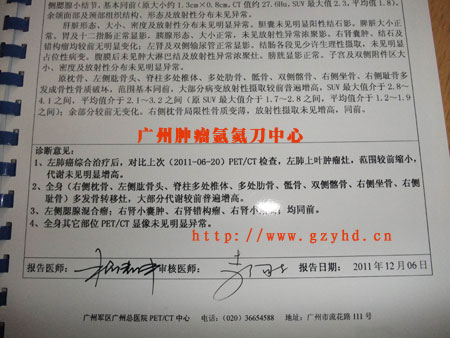 侧腮腺小结节，基本同前（原大小约 1.3cm×0.8cm，CT 值约 27.6Hu，SUV 最大值 2.3，平均值 1.8），
余颌面部及颈部组织结构、形态及放射性分布未见明显异常。
肝脏形态、大小、密度及放射性分布未见明显异常。胆囊未见明显阳性结石影。脾脏大小正
常。胃及十二指肠显示正常。胰腺形态、大小正常，未见明显异常放射性浓聚影。右肾囊肿、结石及
错构瘤均较前无明显变化；左肾及双侧输尿管正常显影。结肠各段见少许生理性摄取，未见明显
占位性病变。腹膜后未见肿大淋巴结及放射性异常浓聚。膀胱显影正常。子宫及双侧附件区大
小、密度及放射性分布未见明显异常。
原枕骨、左侧肱骨头、脊柱多处椎体、多处肋骨、骶骨、双侧髂骨、右侧坐骨、右侧耻骨多
发成骨性骨质破坏，范围基本同前，大部分病变放射性摄取较前普遍增高，SUV 最大值介于 2.8～
4.1 之间，平均值介于 2.1～3.2 之间（原 SUV 最大值介于 1.7～2.8 之间，平均值介于 1.2～1.9
之间）；余部分较前无变化。右侧枕骨局限性骨质变薄，放射性摄取未见增高，同前。
广州肿瘤氩氦刀中心
诊断意见：
1、左肺癌综合治疗后，对比上次（2011-06-20）PET/CT 检查，左肺上叶肿瘤灶，范围较前缩小，
代谢未见明显增高。
2、全身（右侧枕骨、左侧肱骨头、脊柱多处椎体、多处肋骨、骶骨、双侧髂骨、右侧坐骨、右侧
耻骨）多发骨转移灶，大部分代谢较前普遍增高。
3、左侧腮腺混合瘤；右肾小囊肿、右肾错构瘤、右肾小结石；均同前。
4、全身其它部位 PET/CT 显像未见明显异常。
http://www.gzyhd.cn
报告医师： 审核医师： 报告日期：2011 年 12 月 06 日
广州军区广州总医院 PET/CT 中心 电话：(020) 36654588 地址：广州市流花路 111 号